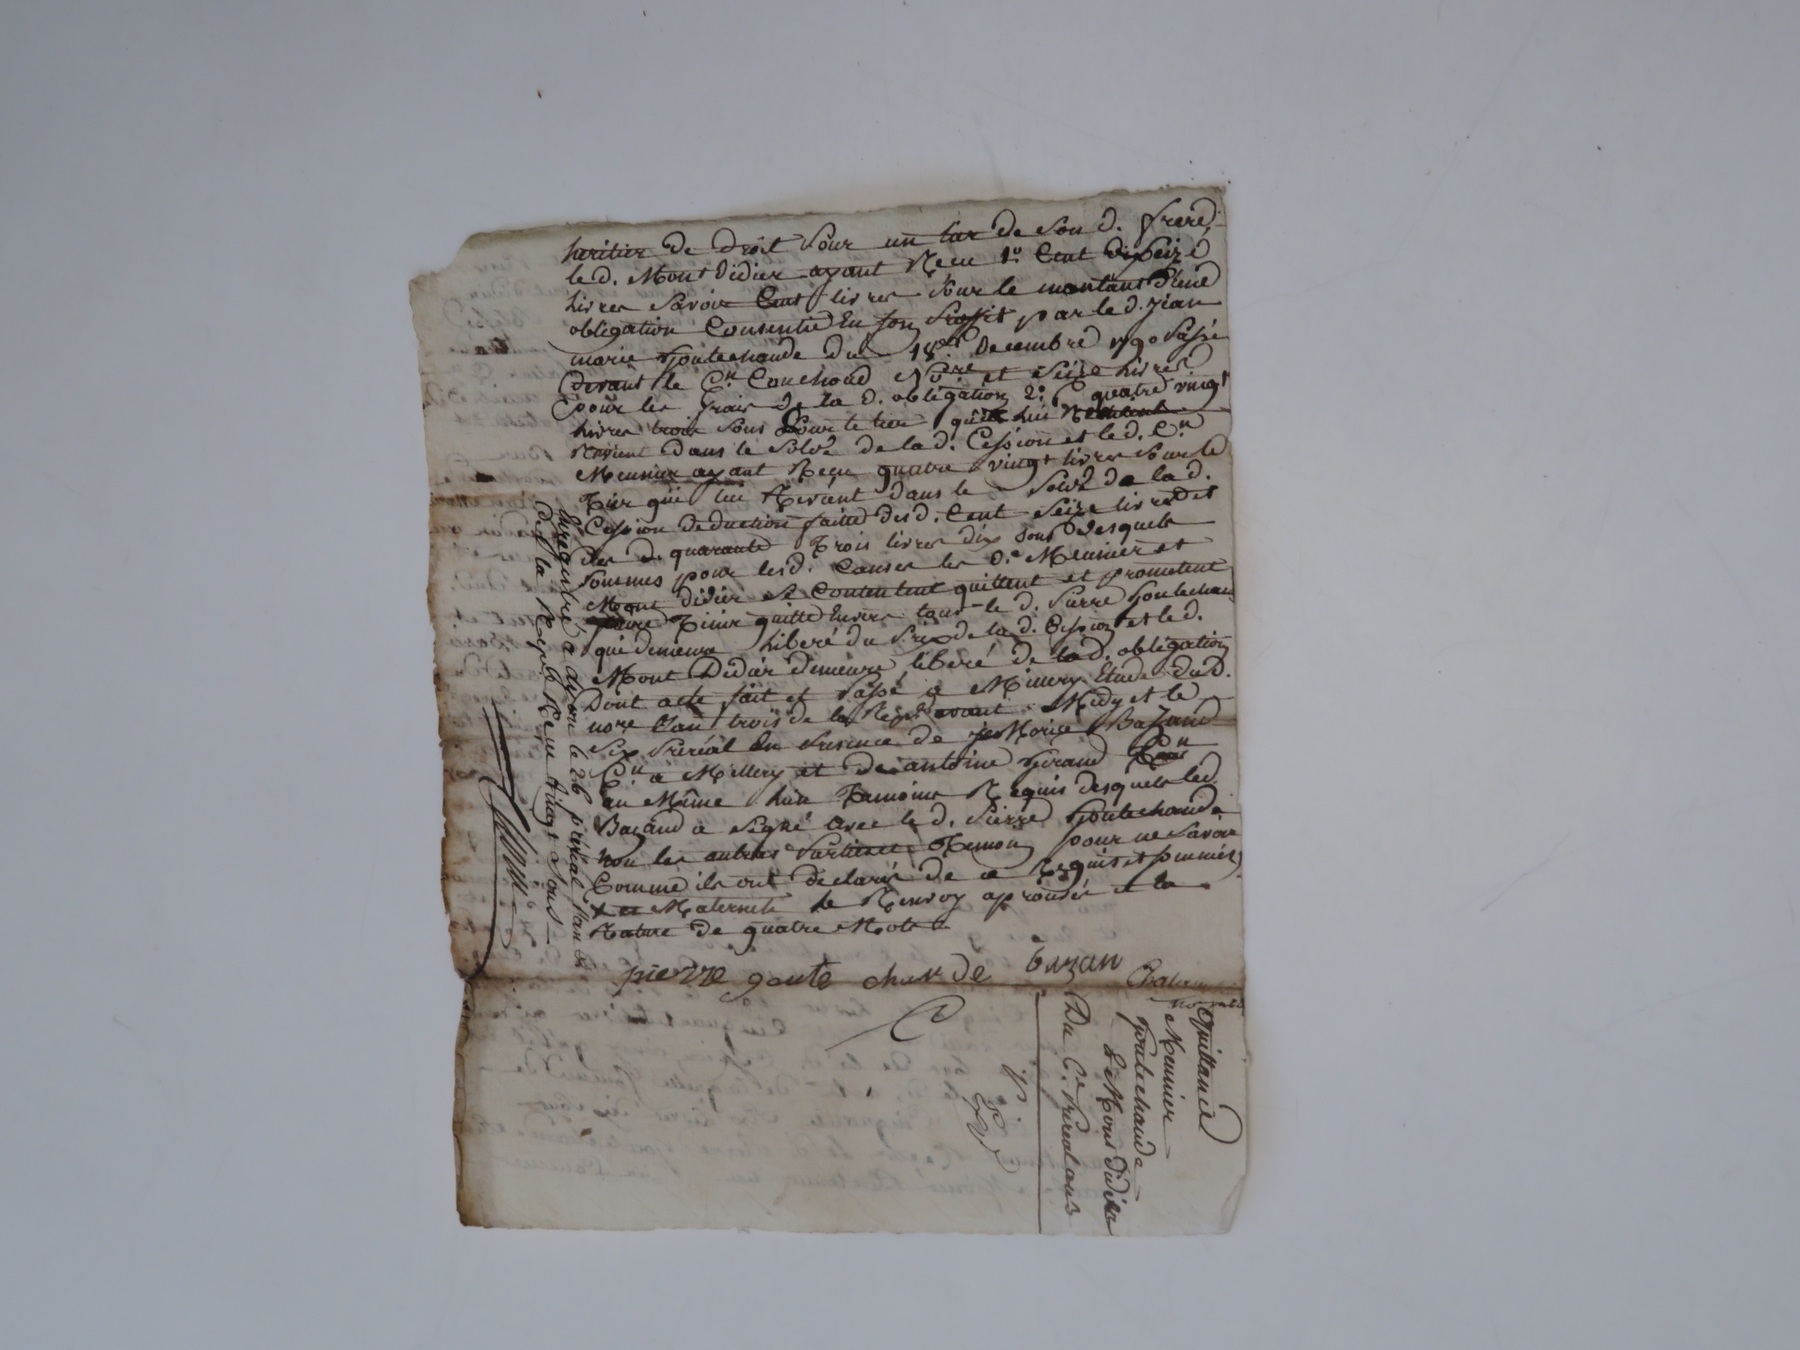 heritier de droit pour un tier de son d. frere,
le d. Mont didier ayant Recu 1º Cent dix Seize
livres savoir Cent livres pour le montant d'une
obligation Consentie En son profit par le d. jean
marie goutechaude du 18e. Decembre 1790 passée
devant le Cn. Couchoud Nore et Seize livres
pour les frais de la d. obligation 2º quatre vingt
livres trois sous pour le tier qui lui
Revient dans le Solde de la d. Cession et le d. Cn.
Meunier ayant Reçu quatre vingt livres pour le
Tier qui lui Revient dans le Solde de la d.
Cession deduction faitte des d. Cent Seize livres et
des d. quarante Trois livres dix sous desquels
sommes pour les d. Causes les d. Meunier et
Mont didier se Contentent quittent et prometent
faire Tenir quitte Envers tous le d. pierre goutechau
que demeure liberé du prix de la d. Cession et le d.
Mont Didier demeure liberé de la d. obligation
Dont acte fait et passé a Millery Etude du d.
nore l'an trois de la Repe. avant Midy et le
Six preréal En presence de Morice Bazand
Cn. a Millery et de antoine girand Cn.
au Même lieu Temoins Requis desquels le d.
Bazand a signé avec le d. pierre goutechaude
non les autres parties et Temoin pour ne savoir
Comme ils ont declarés de ce Requis et sommés
x Maternels le Renvoy aprouvés et la
Rature de quatre Mots
pierre goute chaude bazan
Enregistré a le 26 prérial l'an 3e
de la Repb. Reçu vingt sous
Quittance
Meunier
goutechaude
& Mont didier
Du 6e. prereal an 3